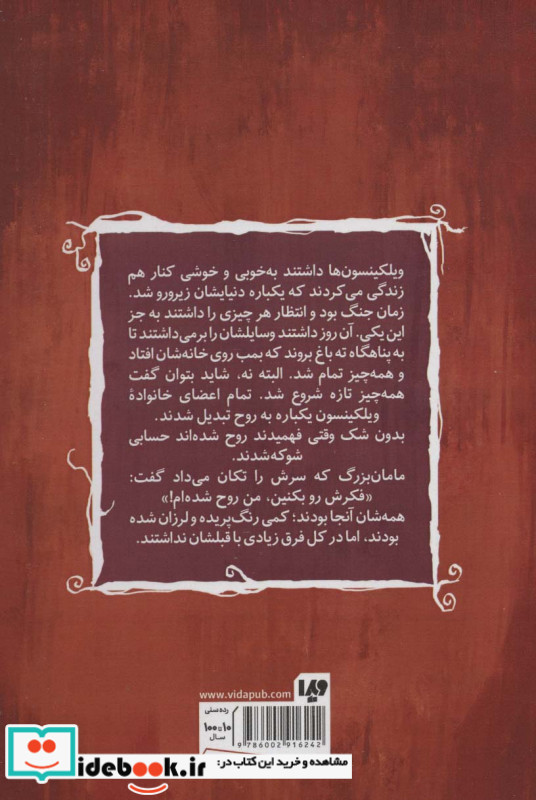 ویلکینسون‌ها داشتند به‌خوبی و خوشی کنار هم
زندگی می‌کردند که یکباره دنیایشان زیرورو شد.
زمان جنگ بود و انتظار هر چیزی را داشتند به جز
این یکی. آن روز داشتند وسایلشان را برمی‌داشتند تا
به پناهگاه ته باغ بروند که بمب روی خانه‌شان افتاد
و همه‌چیز تمام شد. البته نه، شاید بتوان گفت
همه‌چیز تازه شروع شد. تمام اعضای خانوادهٔ
ویلکینسون یکباره به روح تبدیل شدند.
بدون شک وقتی فهمیدند روح شده‌اند حسابی
شوکه‌شدند.
مامان‌بزرگ که سرش را تکان می‌داد گفت:
«فکرش رو بکنین، من روح شده‌ام!»
همه‌شان آنجا بودند؛ کمی رنگ‌پریده و لرزان شده
بودند، اما در کل فرق زیادی با قبلشان نداشتند.
ویدا
www.vidapub.com
رده‌سنی
۱۰ تا ۱۰۰
سال
9 786002 916242
مشاهده و خرید این کتاب در:
idebook.ir